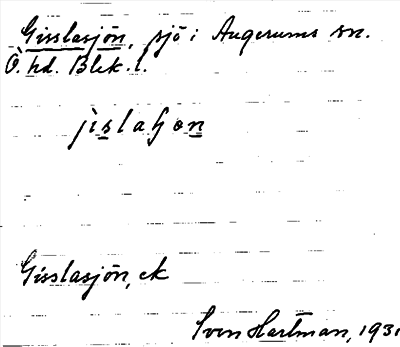 Gisslasjön, sjö i Augerums sn.
Ö. hd. Blek. l.
jìslaɧon
Gisslasjön, ek
Sven Hartman, 1931